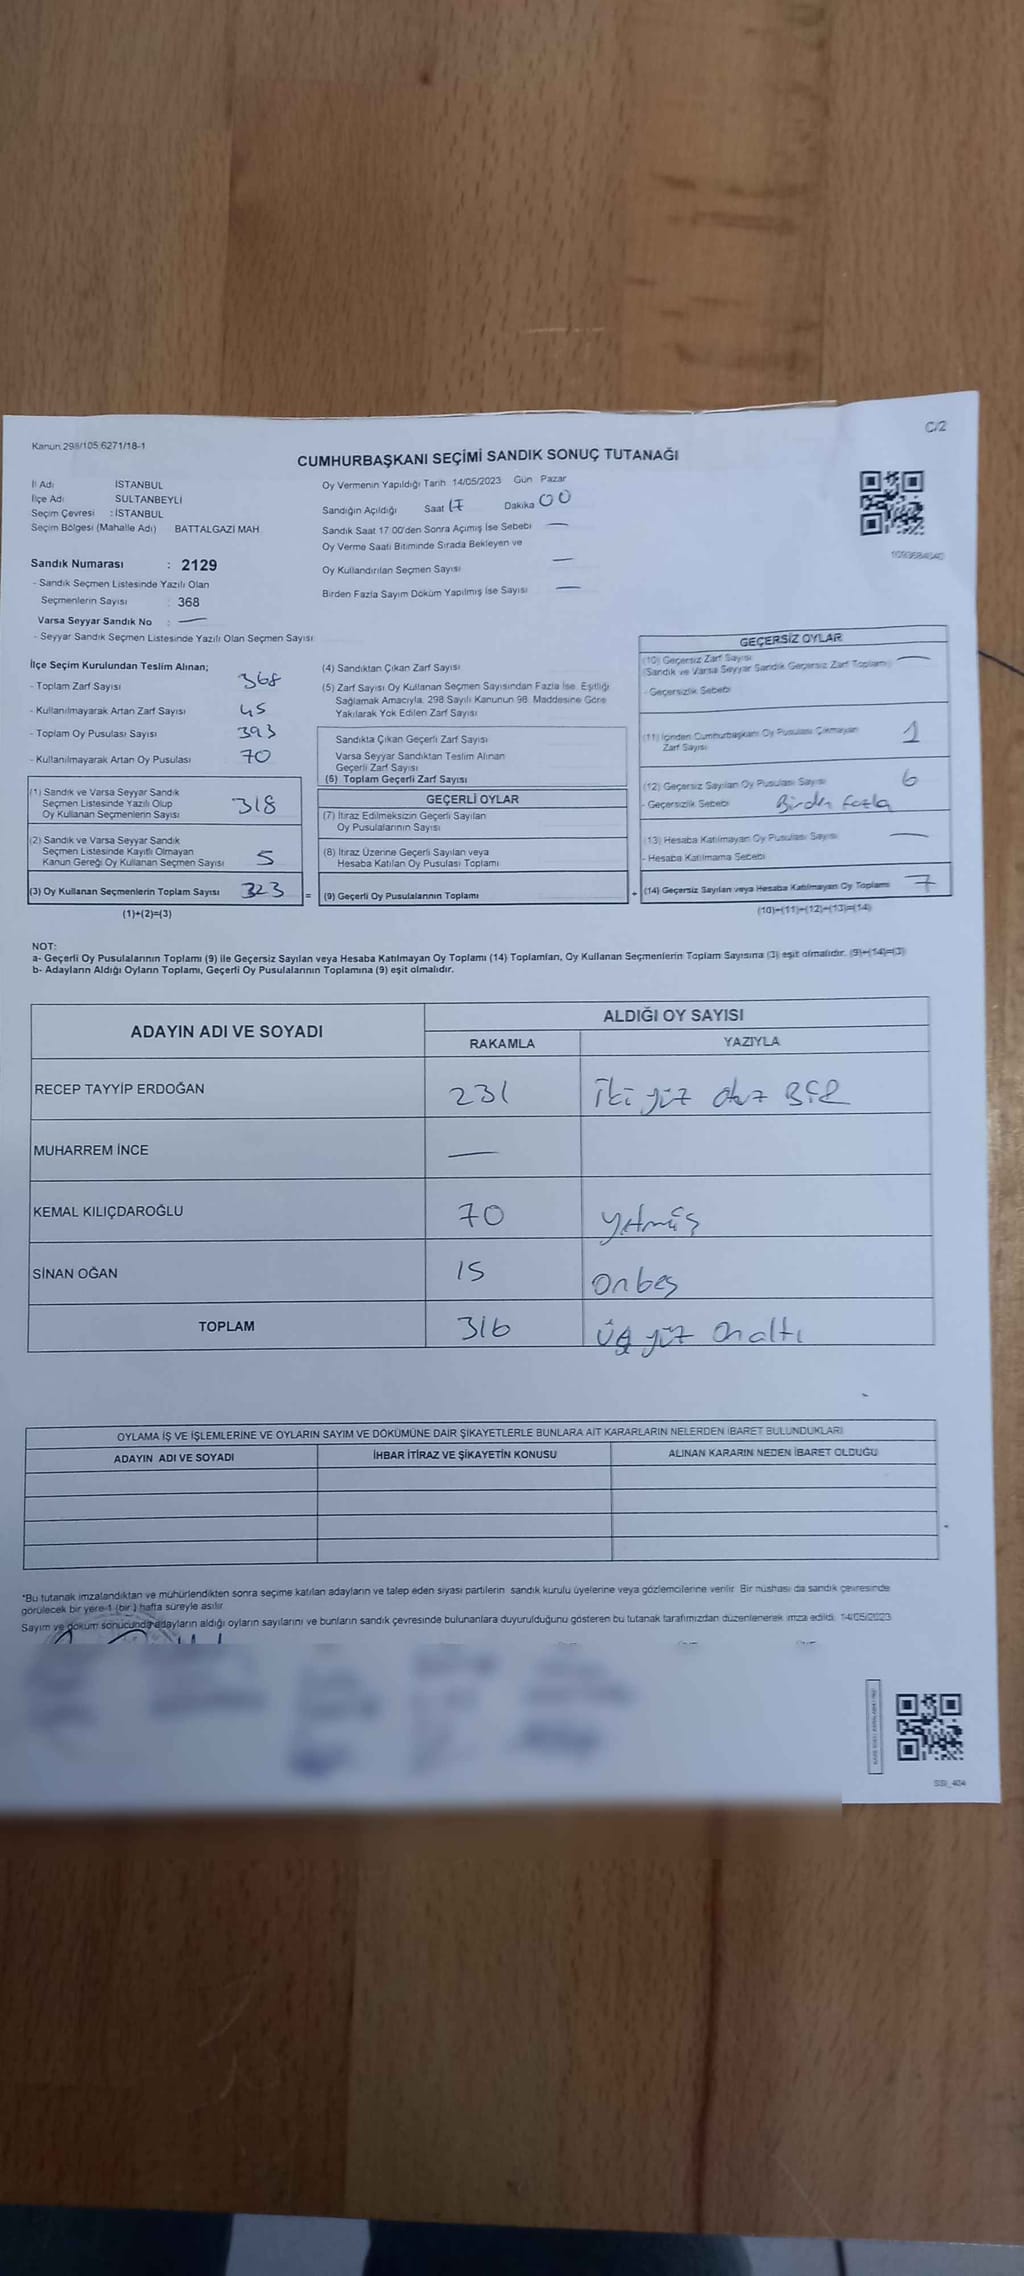 C/2
Kanun 298/105 6271/18-1
CUMHURBAŞKANI SEÇİMİ SANDIK SONUÇ TUTANAĞI
İl Adı İSTANBUL
İlçe Adı SULTANBEYLİ
Seçim Çevresi : İSTANBUL
Seçim Bölgesi (Mahalle Adı) BATTALGAZİ MAH.
Oy Vermenin Yapıldığı Tarih 14/05/2023 Gün Pazar
Sandığın Açıldığı Saat 17 Dakika 00
Sandık Saat 17.00'den Sonra Açımış İse Sebebi —
Oy Verme Saati Bitiminde Sırada Bekleyen ve
Oy Kullandırılan Seçmen Sayısı —
Birden Fazla Sayım Döküm Yapılmış İse Sayısı —
Sandık Numarası : 2129
- Sandık Seçmen Listesinde Yazılı Olan
Seçmenlerin Sayısı : 368
Varsa Seyyar Sandık No : —
- Seyyar Sandık Seçmen Listesinde Yazılı Olan Seçmen Sayısı
İlçe Seçim Kurulundan Teslim Alınan;
- Toplam Zarf Sayısı 368
- Kullanılmayarak Artan Zarf Sayısı 45
- Toplam Oy Pusulası Sayısı 393
- Kullanılmayarak Artan Oy Pusulası 70
(1) Sandık ve Varsa Seyyar Sandık
Seçmen Listesinde Yazılı Olup
Oy Kullanan Seçmenlerin Sayısı 318
(2) Sandık ve Varsa Seyyar Sandık
Seçmen Listesinde Kayıtlı Olmayan
Kanun Gereği Oy Kullanan Seçmen Sayısı 5
(3) Oy Kullanan Seçmenlerin Toplam Sayısı 323 =
(1)+(2)=(3)
(4) Sandıktan Çıkan Zarf Sayısı
(5) Zarf Sayısı Oy Kullanan Seçmen Sayısından Fazla İse, Eşitliği
Sağlamak Amacıyla, 298 Sayılı Kanunun 98. Maddesine Göre
Yakılarak Yok Edilen Zarf Sayısı
Sandıkta Çıkan Geçerli Zarf Sayısı
Varsa Seyyar Sandıktan Teslim Alınan
Geçerli Zarf Sayısı
(6) Toplam Geçerli Zarf Sayısı
GEÇERLİ OYLAR
(7) İtiraz Edilmeksizin Geçerli Sayılan
Oy Pusulalarının Sayısı
(8) İtiraz Üzerine Geçerli Sayılan veya
Hesaba Katılan Oy Pusulası Toplamı
(9) Geçerli Oy Pusulalarının Toplamı +
GEÇERSİZ OYLAR
(10) Geçersiz Zarf Sayısı —
(Sandık ve Varsa Seyyar Sandık Geçersiz Zarf Toplamı)
- Geçersizlik Sebebi
(11) İçinden Cumhurbaşkanı Oy Pusulası Çıkmayan
Zarf Sayısı 1
(12) Geçersiz Sayılan Oy Pusulası Sayısı 6
- Geçersizlik Sebebi Birden fazla
(13) Hesaba Katılmayan Oy Pusulası Sayısı —
- Hesaba Katılmama Sebebi
(14) Geçersiz Sayılan veya Hesaba Katılmayan Oy Toplamı 7
(10)+(11)+(12)+(13)=(14)
NOT:
a- Geçerli Oy Pusulalarının Toplamı (9) ile Geçersiz Sayılan veya Hesaba Katılmayan Oy Toplamı (14) Toplamları, Oy Kullanan Seçmenlerin Toplam Sayısına (3) eşit olmalıdır. (9)+(14)=(3)
b- Adayların Aldığı Oyların Toplamı, Geçerli Oy Pusulalarının Toplamına (9) eşit olmalıdır.
ADAYIN ADI VE SOYADI ALDIĞI OY SAYISI
RAKAMLA YAZIYLA
RECEP TAYYİP ERDOĞAN 231 iki yüz otuz BİR
MUHARREM İNCE —
KEMAL KILIÇDAROĞLU 70 yetmiş
SİNAN OĞAN 15 onbeş
TOPLAM 316 üç yüz onaltı
OYLAMA İŞ VE İŞLEMLERİNE VE OYLARIN SAYIM VE DÖKÜMÜNE DAİR ŞİKAYETLERLE BUNLARA AİT KARARLARIN NELERDEN İBARET BULUNDUKLARI
ADAYIN ADI VE SOYADI İHBAR İTİRAZ VE ŞİKAYETİN KONUSU ALINAN KARARIN NEDEN İBARET OLDUĞU
*Bu tutanak imzalandıktan ve mühürlendikten sonra seçime katılan adayların ve talep eden siyasi partilerin sandık kurulu üyelerine veya gözlemcilerine verilir. Bir nüshası da sandık çevresinde
görülecek bir yere 1 (bir ) hafta süreyle asılır.
Sayım ve döküm sonucunda adayların aldığı oyların sayılarını ve bunların sandık çevresinde bulunanlara duyurulduğunu gösteren bu tutanak tarafımızdan düzenlenerek imza edildi. 14/05/2023